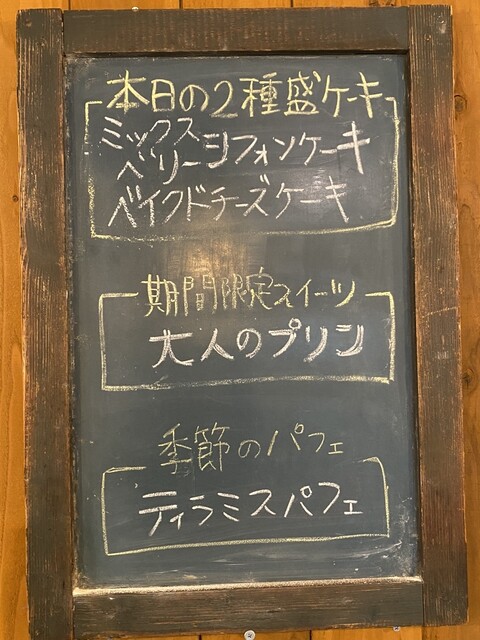 本日の2種盛ケーキ
ミックス
ベリーシフォンケーキ
ベイクドチーズケーキ
期間限定スイーツ
大人のプリン
季節のパフェ
ティラミスパフェ